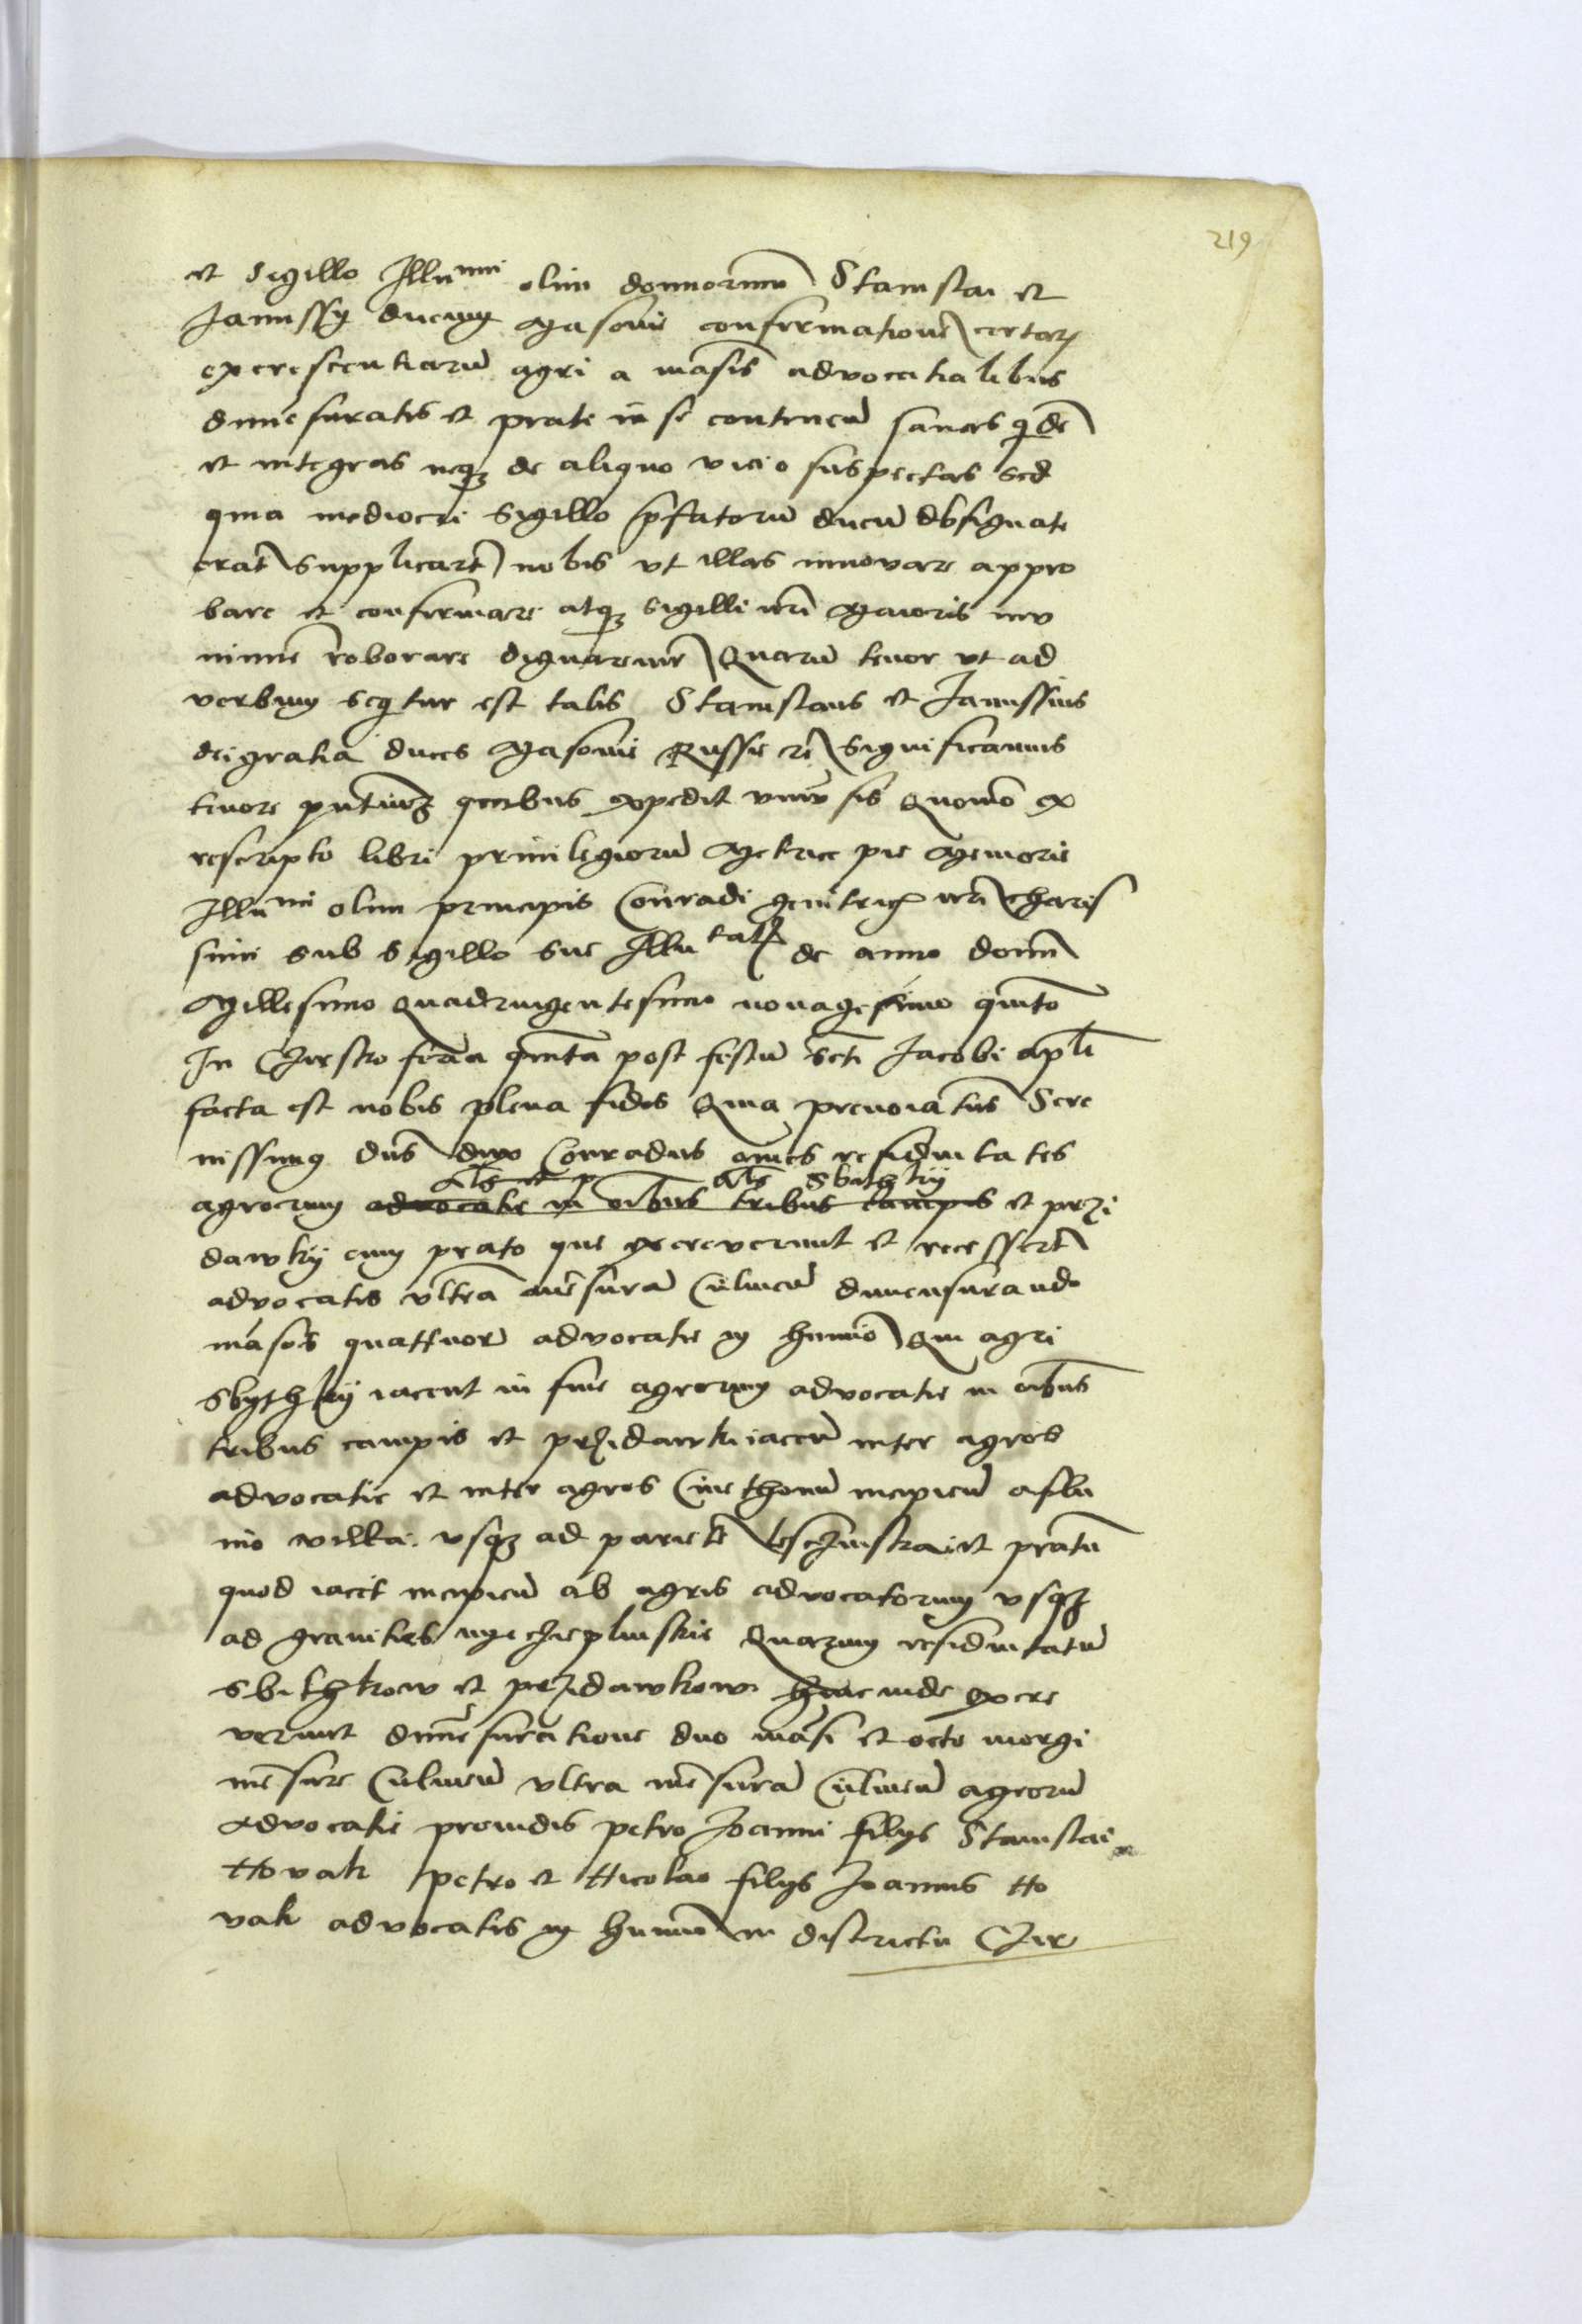 219
et sigillo Illumi olim dominorum Stanislai et
Janussy ducum Masovie confirmationem certarum
excrescentiarum agri a mansis advocatialibus
dimensuratis et prate in se continen sanas quidem
et integras neque de aliquo vicio suspectas sed
quia mediocri sigillo prefatorum ducum obsignate
erant supplicarunt nobis ut illas innovare appro
bare et confirmare atque sigilli nostri Maioris mu
nimine roborare dignaremur Quarum tenor ut ad
verbum sequitur est talis Stanislaus et Janussius
dei gratia duces Masovie Russie etc Significamus
tenore presentium quibus expedit universis Quomodo ex
rescripto libri privilegiorum Metrice pie Memorie
Illumi olim principis Conradi genitoris nostri charis
simi sub sigillo sue Illutatis de anno domini
Millesimo Quadringentesimo nonagesimo quinto
In Czirsko feria quinta post festum sancti Jacobi apli
facta est nobis plena fides Quia prenoiatus Sere
nissimus dns dux Conradus omnes residuitates
als als Sbithky
agrorum advocatie in omnibus tribus campis et przi
dawky cum prato que excreverunt et recesserunt
advocatis ultra mensuram Culmen dimensurando
mansos quattuor advocatie in humino Qui agri
Sbythky iacent in fine agrorum advocatie in omnibus
tribus campis et przidawki iacen inter agros
advocatie et inter agros Cmethonum incipien a flu
mio villa usque ad pariete et pratum
quod iacet incipien ab agris advocatorum usque
ad granities Quarum residuitatum
Sbithkow et przidawkow hinc inde excre
verunt dimensuratione duo mansi et octo morgi
mensure Culmen ultra mensuram Culmen agrorum
advocatie providis petro Joanni filys Stanislai
Novak petro et Nicolao filys Joannis No
vak advocatis in humino in districtu Czir